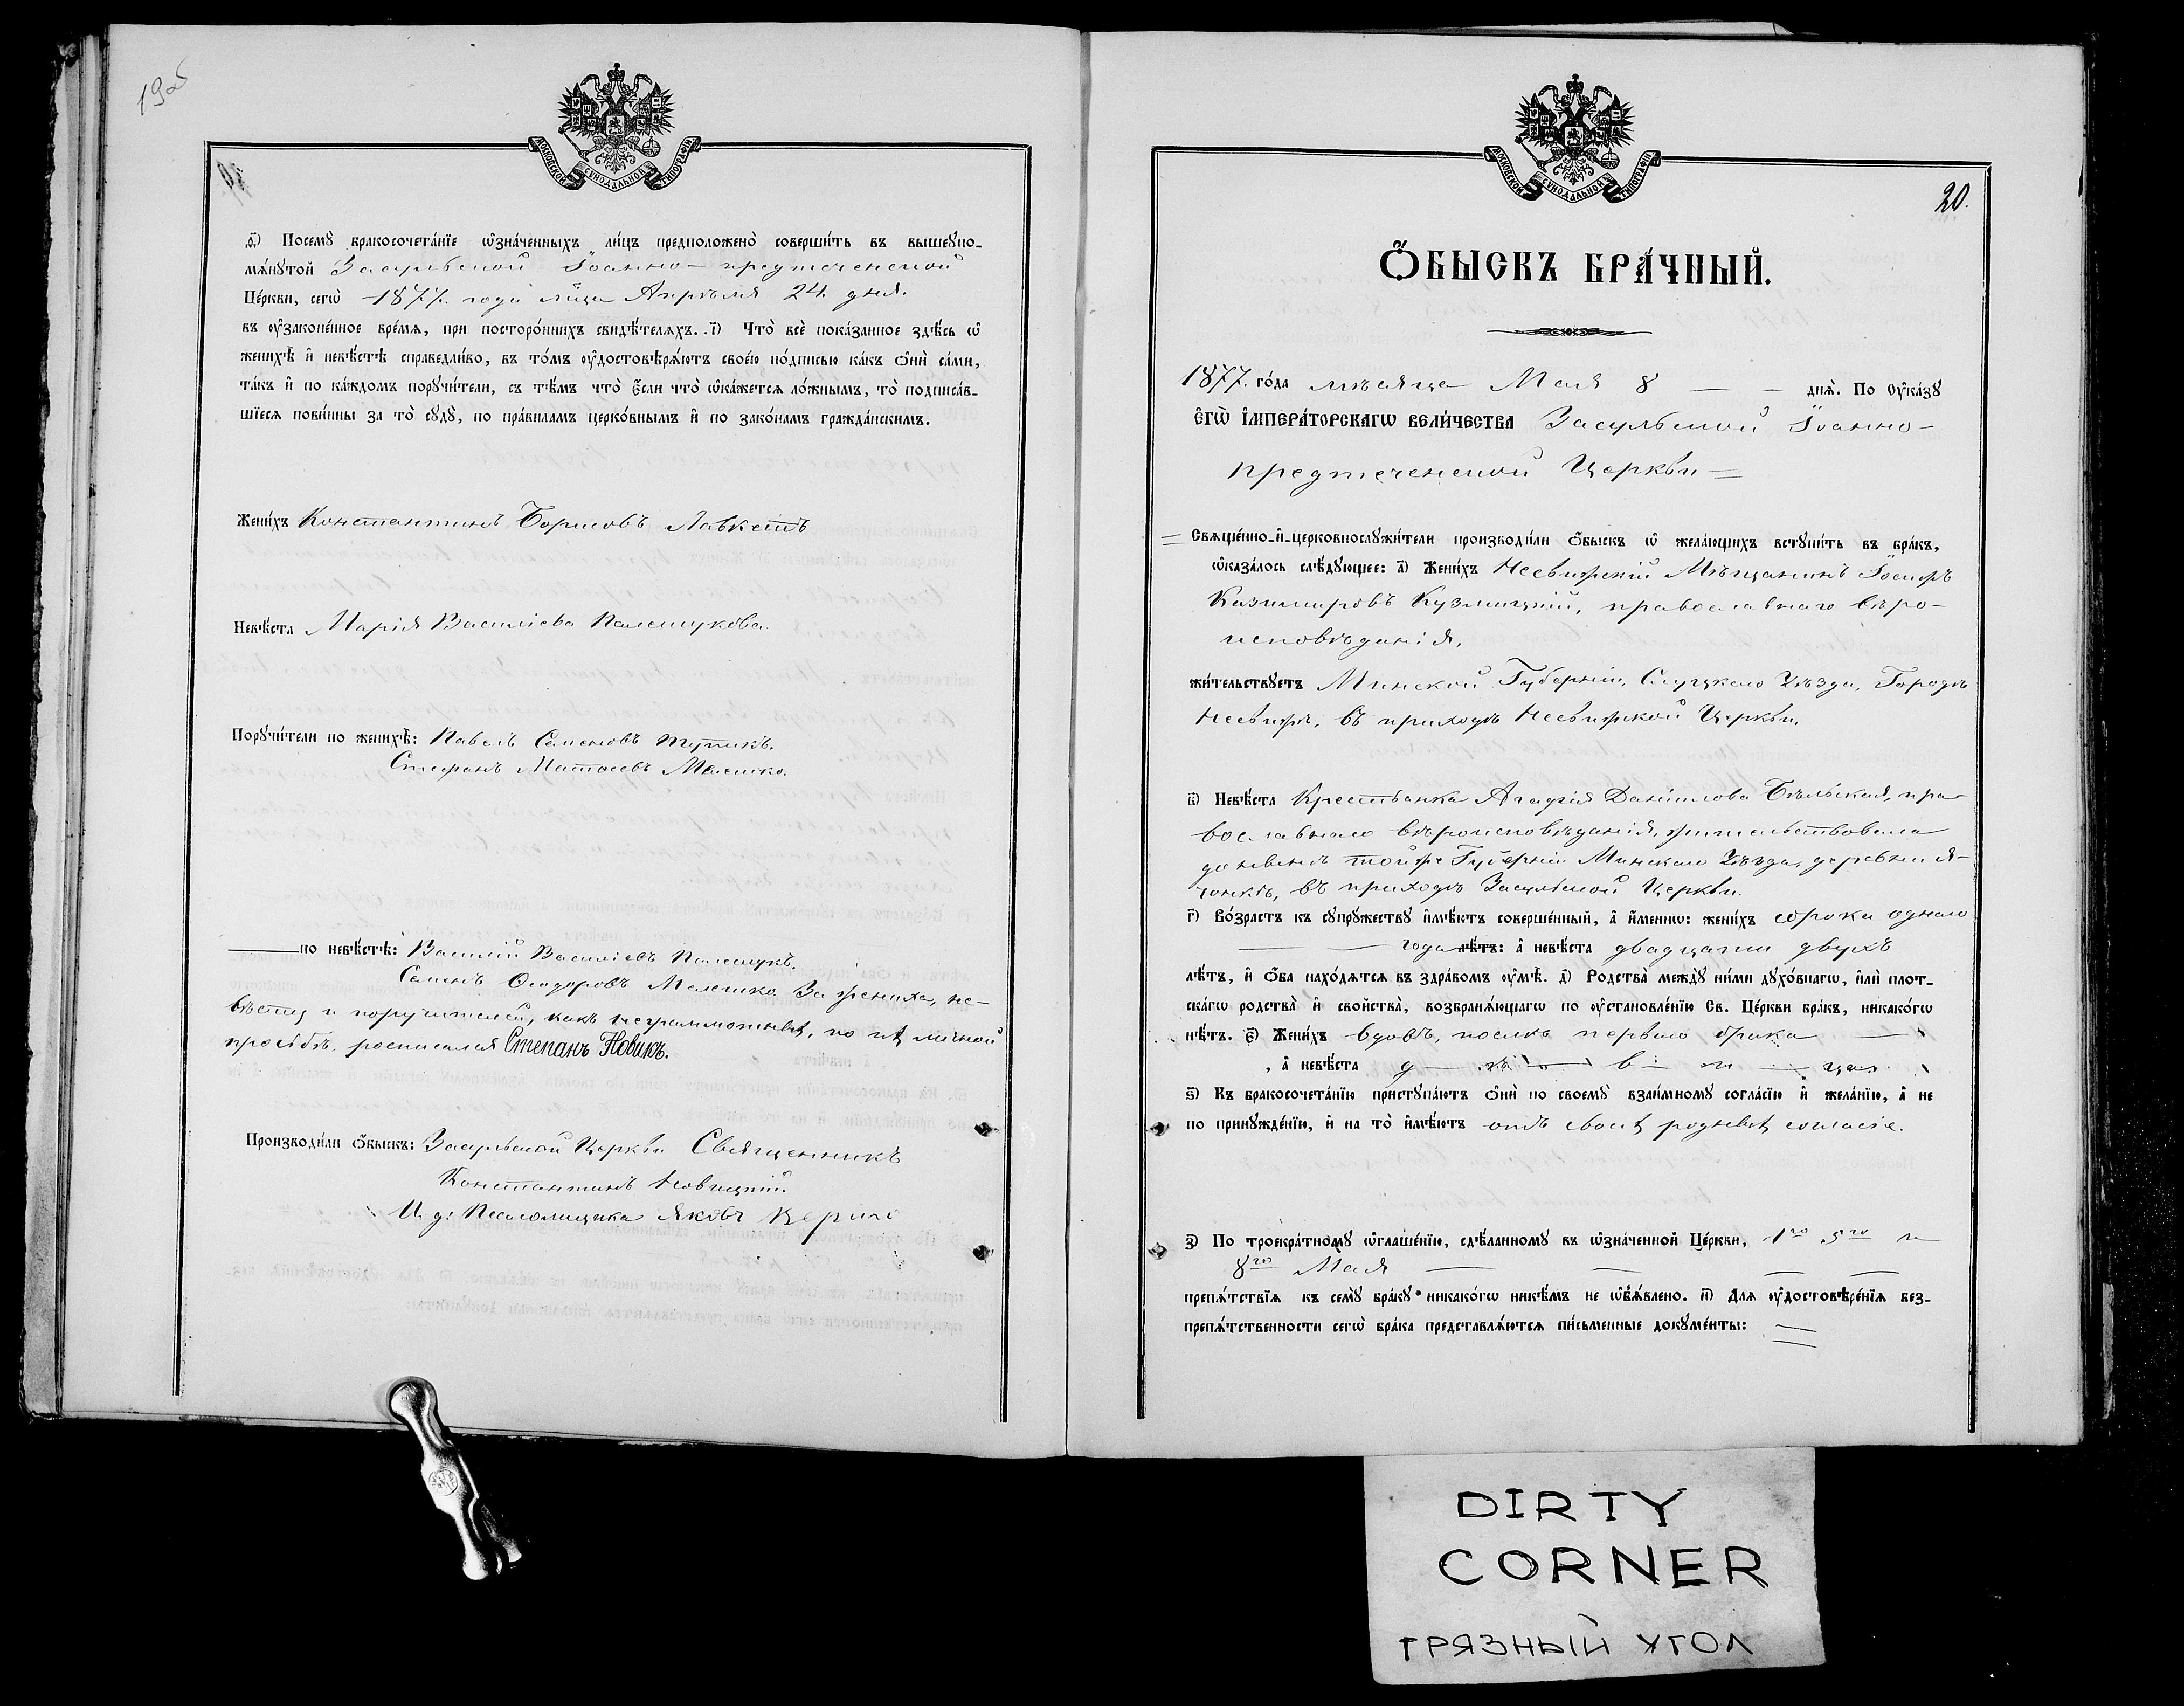 19об
МОСКОВСКОЙ СУНОДАЛЬНОЙ ТИПОГРАФІИ
ѳ҃) Посемꙋ̀ бракосочета́нїе ѡ҆зна́ченныхъ ли́цъ предположено̀ соверши́ть въ вышеꙋпо-
мѧ́нꙋтой Засульской Іоанно-предтеченской
Це́ркви, сегѡ̀ 1877. года мѣца Апрѣля 24. дня.
въ ᲂу҆зако́ненное вре́мѧ, при посторо́ннихъ свидѣ́телѧхъ. і҃) Что̀ всѐ пока́занное здѣ́сь ѡ҆
женихѣ̀ и҆ невѣ́стѣ справедли́во, въ то́мъ ᲂу҆достовѣрѧ́ютъ свое́ю по́дписью ка́къ ѻ҆нѝ са́ми,
та́къ и҆ по ка́ждомъ порꙋчи́тели, съ тѣ́мъ что̀ є҆́сли что̀ ѡ҆ка́жетсѧ ло́жнымъ, то̀ подписа́в-
шїесѧ пови́нны за то̀ сꙋдꙋ̀, по пра́виламъ церко́внымъ и҆ по зако́намъ гражда́нскимъ.
Жени́хъ Константинъ Борисовъ Лавкетъ
Невѣ́ста Марія Василіева Палещукова.
Порꙋчи́тели по женихѣ̀: Павелъ Семеновъ Тупикъ.
Стефанъ Матѳеевъ Малешко.
по невѣ́стѣ: Василій Василіевъ Палещукъ.
Семенъ Ѳеодоровъ Малешко. За жениха, не-
вѣсту и поручителей, какъ неграмотныхъ, по ихъ личной
просьбѣ, росписался Степанъ Новикъ.
Производи́ли ѻ҆́быскъ: Засульской Церкви Священникъ
Константинъ Новицкій.
И. д: Псаломщика Яковъ
МОСКОВСКОЙ СУНОДАЛЬНОЙ ТИПОГРАФІИ
20.
Ѻ҆́БЫСКЪ БРА́ЧНЫЙ.
1877. го́да мѣсяца Мая 8 — — днѧ̀. По Оу҆ка́зꙋ
Є҆ГѠ̀ И҆МПЕРА́ТОРСКАГѠ ВЕЛИ́ЧЕСТВА Засульской Іоанно-
предтеченской Церкви =
= Свѧще́нно-и҆-церковнослꙋжи́тели производи́ли ѻ҆́быскъ ѡ҆ жела́ющихъ встꙋпи́ть въ бра́къ,
ѡ҆каза́лось слѣ́дꙋющее: а҃) Жени́хъ Несвижскій Мѣщанинъ Іосифъ
Казимировъ Кузмицкій, православнаго вѣро-
исповѣданія,
жи́тельствꙋетъ Минской Губерніи, Слуцкаго Уѣзда, Городѣ
Несвижѣ, въ приходѣ Несвижской Церкви.
в҃) Невѣ́ста Крестьянка Агафія Даніилова Бѣльская, пра-
вославнаго вѣроисповѣданія, жительствовала
донынѣ тойже Губерніи Минскаго Уѣзда, деревни Я-
чонкѣ, въ приходѣ Засульской Церкви.
г҃) Во́зрастъ къ сꙋпрꙋ́жествꙋ и҆мѣ́ютъ соверше́нный, а҆ и҆́менно: жени́хъ сорока одного
— — года лѣ́тъ: а҆ невѣ́ста двадцати двухъ
лѣ́тъ, и҆ ѻ҆́ба нахо́дѧтсѧ въ здра́вомъ ᲂу҆мѣ̀. д҃) Родства̀ междꙋ̀ ни́ми дꙋхо́внагѡ, и҆лѝ плот-
ска́гѡ родства̀ и҆ свойства̀, возбранѧ́ющагѡ по ᲂу҆становле́нїю Св. Це́ркви бра́къ, никако́гѡ
нѣ́тъ. є҃) Жени́хъ вдовъ, послѣ перваго брака —
, а҆ невѣ́ста д — ѣ — в — и — ца
ѕ҃) Къ бракосочета́нїю пристꙋпа́ютъ ѻ҆нѝ по своемꙋ̀ взаи́мномꙋ согла́сїю и҆ жела́нїю, а҆ не
по принꙋжде́нїю, и҆ на то̀ и҆мѣ́ютъ отъ своихъ родныхъ согласіе.
з҃) По троекра́тномꙋ ѡ҆глаше́нїю, сдѣ́ланномꙋ въ ѡ҆зна́ченной Це́ркви, 1го 5го и
8го Мая — — — —
препѧ́тствїѧ къ семꙋ̀ бра́кꙋ никако́гѡ никѣ́мъ не ѡ҆б̾ѧ́влено. и҃) Длѧ ᲂу҆достовѣре́нїѧ без-
препѧ́тственности сегѡ̀ бра́ка представлѧ́ютсѧ пи́сьменные докꙋме́нты: =
DIRTY
CORNER
ГРЯЗНЫЙ УГОЛ